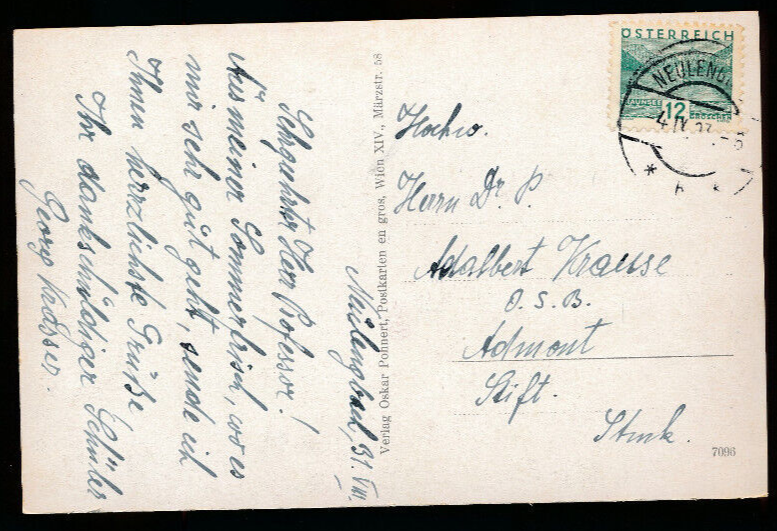 Neulengbach, 31. VIII.
Sehrgeehrter Herr Professor!
Aus meiner Sommerfrisch, wo es
mir sehr gut geht, sende ich
Ihnen herzlichste Grüße
Ihr dankschuldiger Schüler
Georg
Verlag Oskar Pohnert, Postkarten en gros, Wien XIV., Märzstr. 58
ÖSTERREICH
12
GROSCHEN
NEULENG
Hochw.
Herrn Dr. P.
Adalbert Krause
O. S. B.
Admont
Stift.
Stmk.
7096